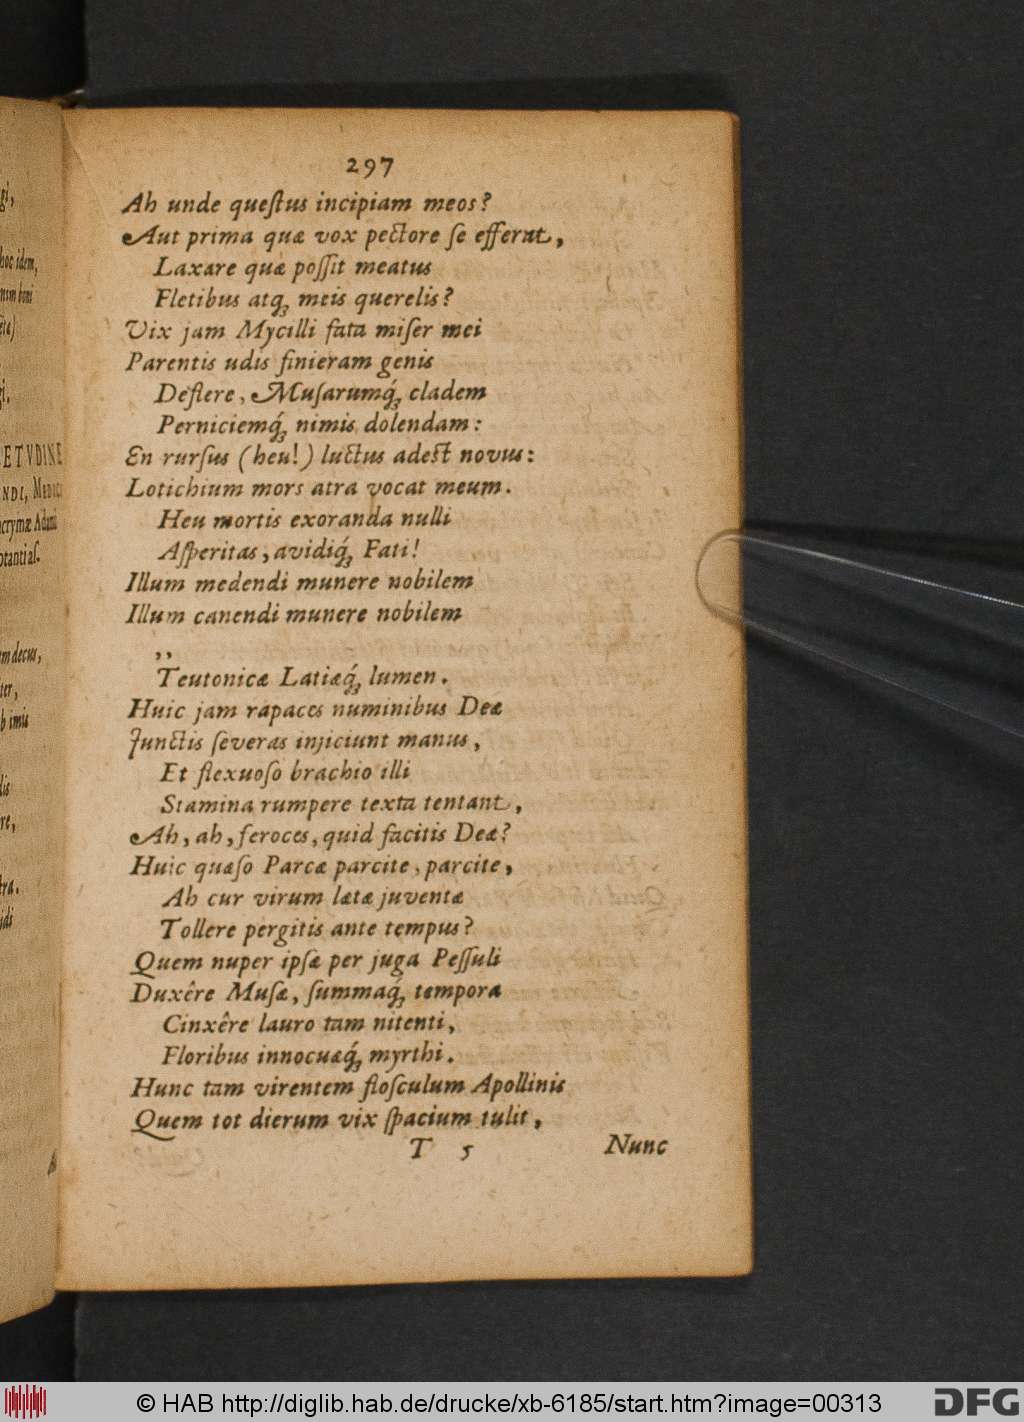 297
Ah unde queſtus incipiam meos?
Aut prima quæ vox pectore ſe efferat,
Laxare quæ poſſit meatus
Fletibus atq́; meis querelis?
Vix jam Mycilli fata miſer mei
Parentis udis finieram genis
Deflere, Muſarumq́; cladem
Perniciemq́; nimis dolendam:
En rurſus (heu!) luctus adest novus:
Lotichium mors atra vocat meum.
Heu mortis exoranda nulli
Aſperitas, avidiq́; Fati!
Illum medendi munere nobilem
Illum canendi munere nobilem
,,
Teutonicæ Latiæq́; lumen.
Huic jam rapaces numinibus Deæ
Junctis ſeveras injiciunt manus,
Et flexuoſo brachio illi
Stamina rumpere texta tentant,
Ah, ah, feroces, quid facitis Deæ?
Huic quæſo Parcæ parcite, parcite,
Ah cur virum lætæ juventæ
Tollere pergitis ante tempus?
Quem nuper ipſæ per juga Peſſuli
Duxêre Muſæ, ſummaq́; tempora
Cinxêre lauro tam nitenti,
Floribus innocuæq́; myrthi.
Hunc tam virentem floſculum Apollinis
Quem tot dierum vix ſpacium tulit,
T 5 Nunc
gi,
hoc idem,
ETVDINE
NDI, MEDICI
acrymæ Adami
em decus,
ter,
b imis
© HAB http://diglib.hab.de/drucke/xb-6185/start.htm?image=00313
DFG